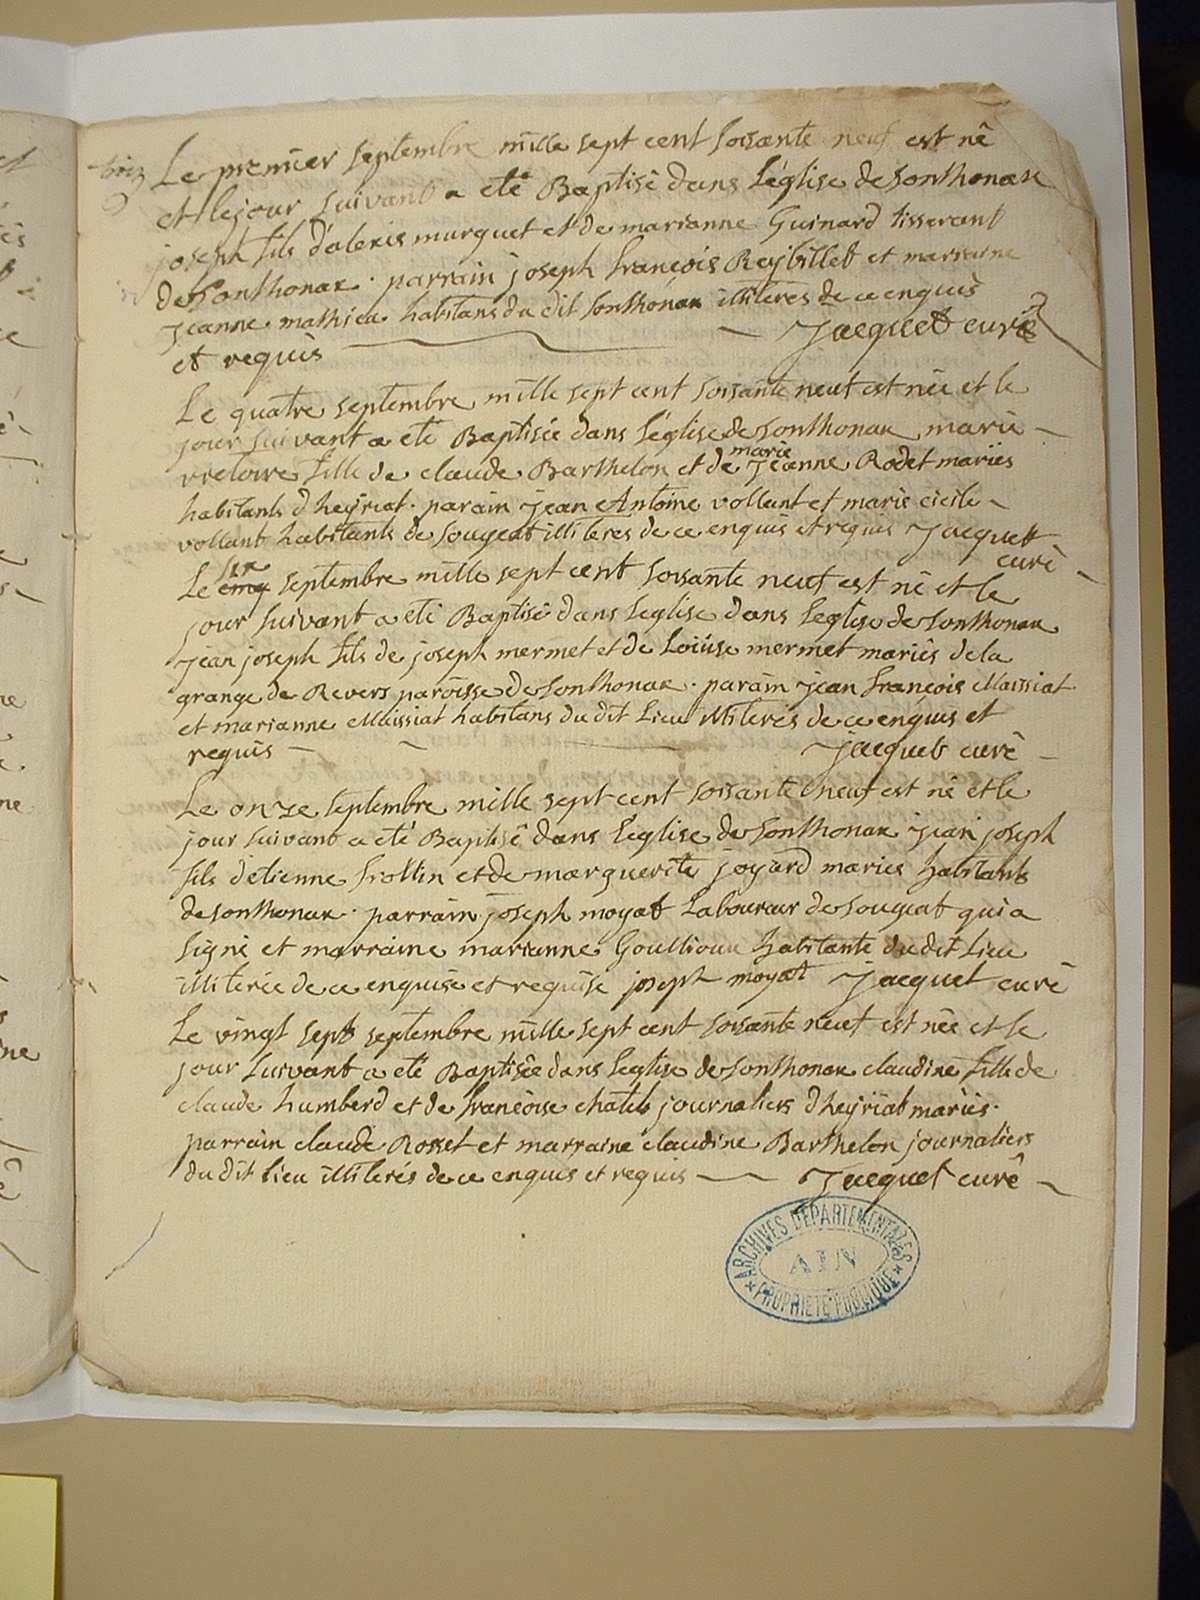 Le premier septembre mille sept cent soisante neuf est né
et le jour suivant a eté Baptisé dans L'église de Sonthonax
joseph fils d'alexis murquet et de marianne Guinard tisserant
de Sonthonax. parrain joseph françois Reybillet et marraine
jeanne mathieu habitans du dit Sonthonax illiteres de ce enquis
et requis Jacquet curé
Le quatre septembre mille sept cent soisante neuf est née et le
jour suivant a eté Baptisée dans L'église de Sonthonax marie
victoire fille de claude Barthelon et de marie jeanne Rodet mariés
habitants d'heyriat. parain jean Antoine vollant et marie cicile
vollant habitants de Sougeat illiteres de ce enquis et requis Jacquet
curé
Le cinq six septembre mille sept cent soisante neuf est né et le
jour suivant a eté Baptisé dans L'église dans L'eglise de Sonthonax
jean joseph fils de joseph mermet et de Loüise mermet mariés de la
grange de Revers paroisse de Sonthonax. parain jean françois Maissiat
et marianne Maissiat habitans du dit Lieu illiterés de ce enquis et
requis jacquet curé
Le onze septembre mille sept cent soisante neuf est né et le
jour suivant a eté Baptisé dans L'église de Sonthonax jean joseph
fils d'etienne frollin et de marguerite joyard mariés habitants
de Sonthonax. parrain joseph moyat Laboureur de Sougeat qui a
Signé et marraine marianne Goullioux habitante du dit Lieu
illiterée de ce enquise et requise joseph moyat Jacquet curé
Le vingt sept septembre mille sept cent soisante neuf est née et le
jour suivant a eté Baptisée dans L'église de Sonthonax claudine fille de
claude humberd et de françoise chatel journaliers d'heyriat mariés.
parrain claude Rosset et marraine claudine Barthelon journaliers
du dit lieu illiterés de ce enquis et requis Jacquet curé
ARCHIVES DÉPARTEMENTALES
AIN
PROPRIÉTÉ PUBLIQUE